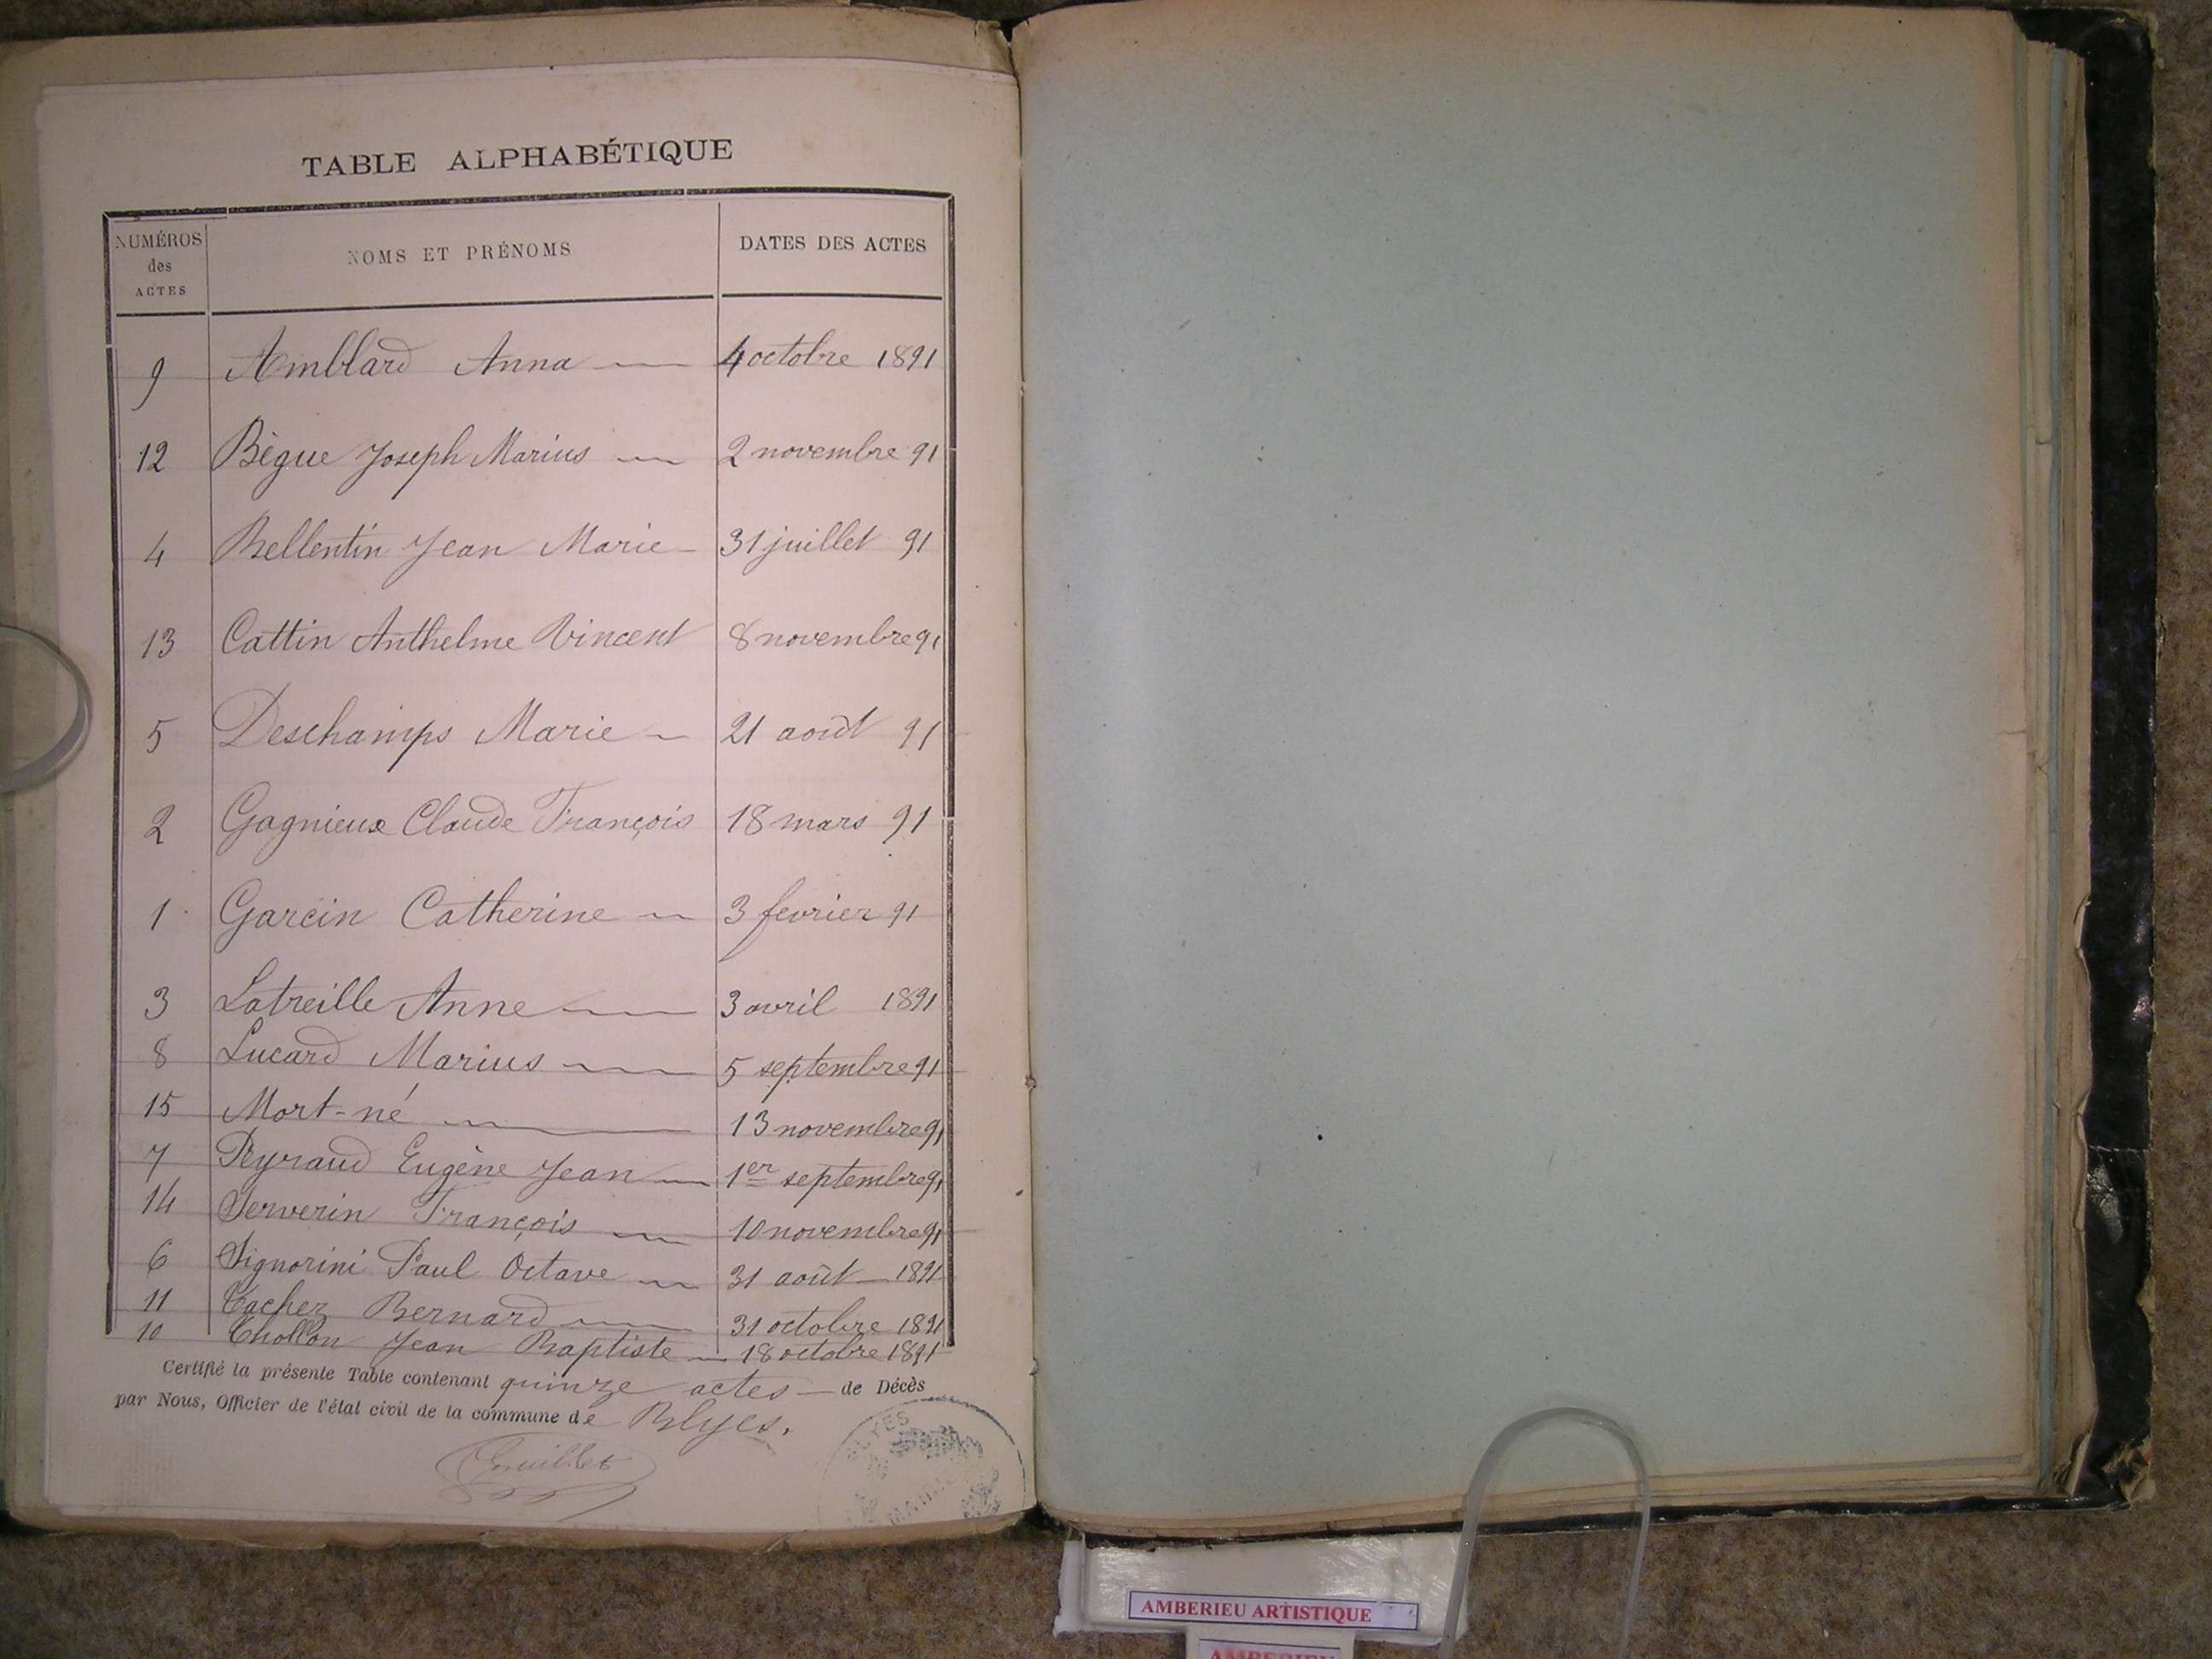 TABLE ALPHABÉTIQUE
NUMÉROS des ACTES NOMS ET PRÉNOMS DATES DES ACTES
9 Amblard Anna 4 octobre 1891
12 Bègue Joseph Marius 2 novembre 91
4 Bellentin Jean Marie 31 juillet 91
13 Cattin Anthelme Vincent 8 novembre 91
5 Deschamps Marie 21 août 91
2 Gagnieux Claude François 18 mars 91
1 Garcin Catherine 3 fevrier 91
3 Latreille Anne 3 avril 1891
8 Lucard Marius 5 septembre 91
15 Mort-né 13 novembre 91
7 Peyraud Eugène Jean 1er septembre 91
14 Serverin François 10 novembre 91
6 Signorini Paul Octave 31 août 1891
11 Tacher Bernard 31 octobre 1891
10 Thollon Jean Baptiste 18 octobre 1891
Certifié la présente Table contenant quinze actes de Décès
par Nous, Officier de l'état civil de la commune de Blyes.
BLYES
AMBERIEU ARTISTIQUE
AMBERIEU